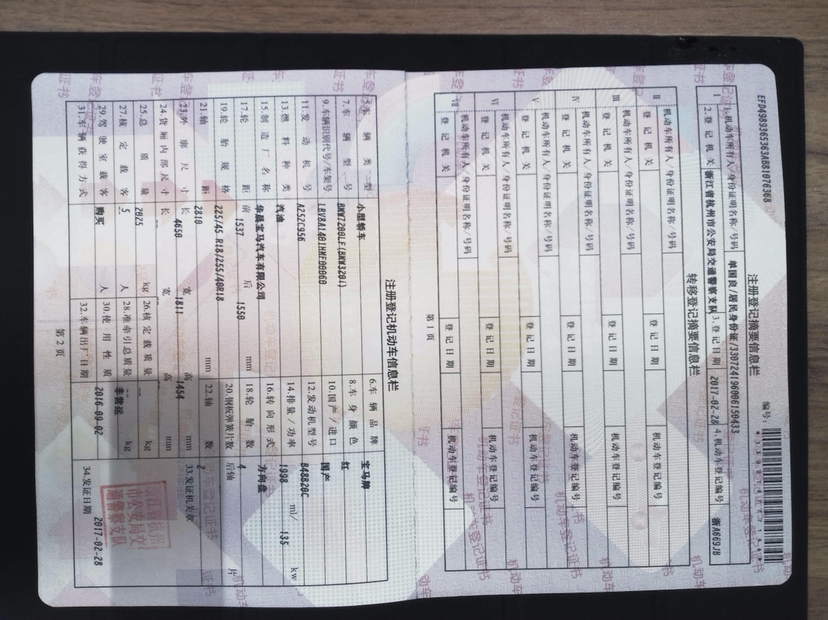 注册登记摘要信息栏
编号:
EFD4989365363A081076368
I
1.机动车所有人/身份证明名称/号码 单国良/居民身份证/330724196006150433
2.登记机关 浙江省杭州市公安局交通警察支队 3.登记日期 2017-02-28 4.机动车登记编号 浙A669JB
转移登记摘要信息栏
II
机动车所有人/身份证明名称/号码
登记机关 登记日期 机动车登记编号
III
机动车所有人/身份证明名称/号码
登记机关 登记日期 机动车登记编号
IV
机动车所有人/身份证明名称/号码
登记机关 登记日期 机动车登记编号
V
机动车所有人/身份证明名称/号码
登记机关 登记日期 机动车登记编号
VI
机动车所有人/身份证明名称/号码
登记机关 登记日期 机动车登记编号
VII
机动车所有人/身份证明名称/号码
登记机关 登记日期 机动车登记编号
第1页
注册登记机动车信息栏
5.车辆类型 小型轿车 6.车辆品牌 宝马牌
7.车辆型号 BMW7200LF(BMW320i) 8.车身颜色 红
9.车辆识别代号/车架号 10.国产/进口 国产
11.发动机号 A252C956 12.发动机型号 B48B20C
13.燃料种类 汽油 14.排量/功率 1998 ml/ 135 kw
15.制造厂名称 华晨宝马汽车有限公司 16.转向形式 方向盘
17.轮距 前 1537 后 1550 mm 18.轮胎数 4
19.轮胎规格 225/45 R18/255/40R18 20.钢板弹簧片数 后轴 片
21.轴距 2810 mm 22.轴数 2
23.外廓尺寸 长 4650 宽 1811 高 1454 mm 33.发证机关章
24.货厢内部尺寸 长 宽 高 mm
25.总质量 2025 kg 26.核定载质量 kg
27.核定载客 5 人 28.准牵引总质量 kg
29.驾驶室载客 人 30.使用性质 非营运
31.车辆获得方式 购买 32.车辆出厂日期 2016-09-02 34.发证日期 2017-02-28
第2页